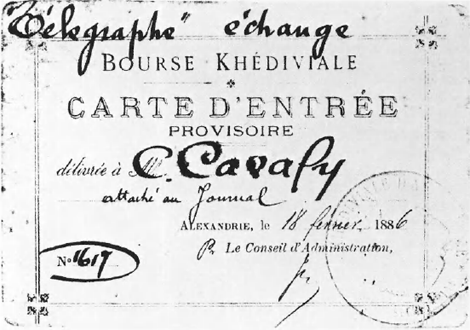 Télégraphe" échange
BOURSE KHÉDIVIALE
CARTE D'ENTRÉE
PROVISOIRE
délivrée à M. C. Cavafy
attaché au Journal
ALEXANDRIE, le 18 février 1886
P. Le Conseil d'Administration,
No 1619